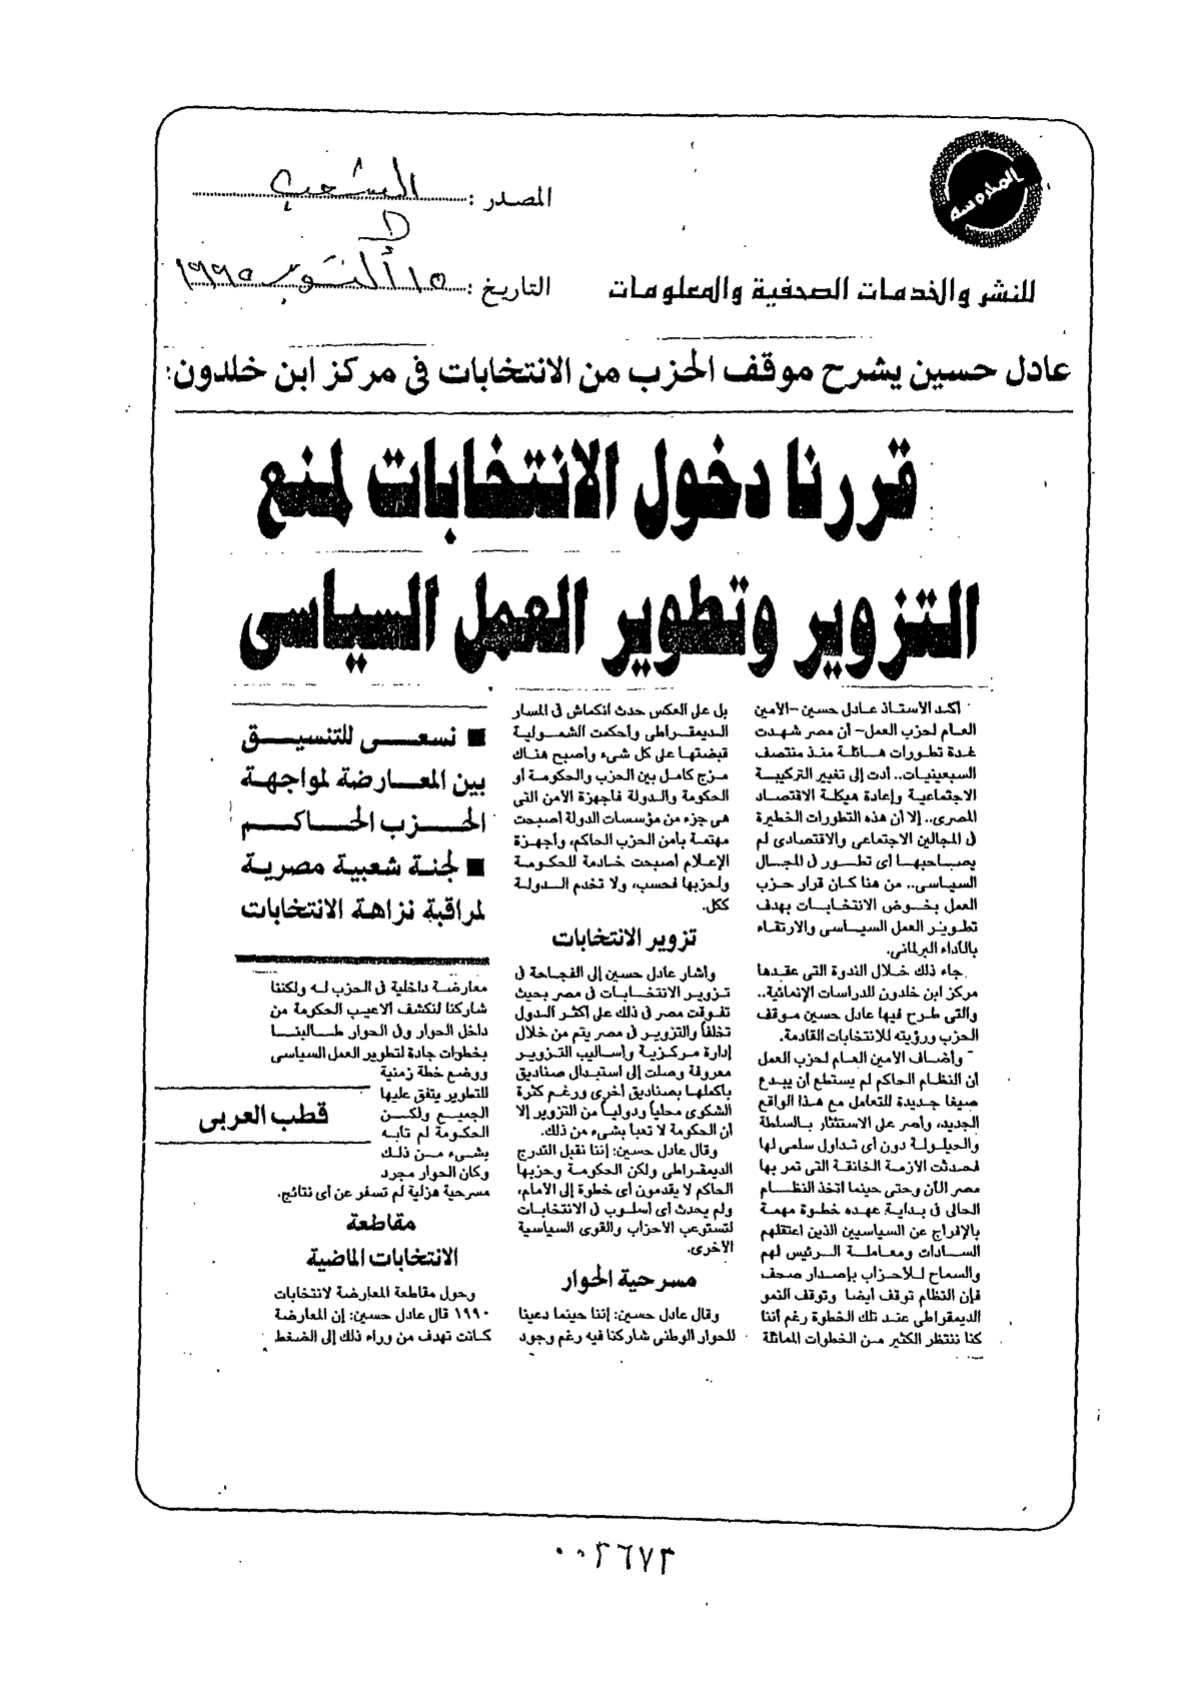 المحروسة
المصدر : الشعب
للنشر والخدمات الصحفية والمعلومات
التاريخ : ١٥ أكتوبر ١٩٩٥
عادل حسين يشرح موقف الحزب من الانتخابات فى مركز ابن خلدون:
قررنا دخول الانتخابات لمنع
التزوير وتطوير العمل السياسى
أكد الأستاذ عادل حسين -الأمين
العام لحزب العمل- أن مصر شهدت
عدة تطورات هائلة منذ منتصف
السبعينيات.. أدت إلى تغيير التركيبة
الاجتماعية وإعادة هيكلة الاقتصاد
المصرى.. إلا أن هذه التطورات الخطيرة
فى المجالين الاجتماعى والاقتصادى لم
يصاحبها أى تطور فى المجال
السياسى.. من هنا كان قرار حزب
العمل بخوض الانتخابات بهدف
تطوير العمل السياسى والارتقاء
بالأداء البرلمانى.
جاء ذلك خلال الندوة التى عقدها
مركز ابن خلدون للدراسات الإنمائية..
والتى طرح فيها عادل حسين موقف
الحزب ورؤيته للانتخابات القادمة.
وأضاف الأمين العام لحزب العمل
أن النظام الحاكم لم يستطع أن يبدع
صيغا جديدة للتعامل مع هذا الواقع
الجديد، وأصر على الاستئثار بالسلطة
والحيلولة دون أى تداول سلمى لها
فحدثت الأزمة الخانقة التى تمر بها
مصر الآن وحتى حينما اتخذ النظام
الحالى فى بداية عهده خطوة مهمة
بالإفراج عن السياسيين الذين اعتقلهم
السادات ومعاملة الرئيس لهم
والسماح للأحزاب بإصدار صحف
فإن النظام توقف أيضا وتوقف النمو
الديمقراطى عند تلك الخطوة رغم أننا
كنا ننتظر الكثير من الخطوات المماثلة
بل على العكس حدث انكماش فى المسار
الديمقراطى وأحكمت الشمولية
قبضتها على كل شىء وأصبح هناك
مزج كامل بين الحزب والحكومة أو
الحكومة والدولة فأجهزة الأمن التى
هى جزء من مؤسسات الدولة أصبحت
مهتمة بأمن الحزب الحاكم، وأجهزة
الإعلام أصبحت خادمة للحكومة
ولحزبها فحسب، ولا تخدم الدولة
ككل.
تزوير الانتخابات
وأشار عادل حسين إلى الفجاحة فى
تزوير الانتخابات فى مصر بحيث
تفوقت مصر فى ذلك على أكثر الدول
تخلفاً والتزوير فى مصر يتم من خلال
إدارة مركزية وأساليب التزوير
معروفة وصلت إلى استبدال صناديق
بأكملها بصناديق أخرى ورغم كثرة
الشكوى محلياً ودولياً من التزوير إلا
أن الحكومة لا تعبأ بشىء من ذلك.
وقال عادل حسين: إننا نقبل التدرج
الديمقراطى ولكن الحكومة وحزبها
الحاكم لا يقدمون أى خطوة إلى الأمام،
ولم يحدث أى أسلوب فى الانتخابات
لتستوعب الأحزاب والقوى السياسية
الأخرى.
مسرحية الحوار
وقال عادل حسين: إننا حينما دعينا
للحوار الوطنى شاركنا فيه رغم وجود
■ نسعى للتنسيق
بين المعارضة لمواجهة
الحزب الحاكم
■ لجنة شعبية مصرية
لمراقبة نزاهة الانتخابات
معارضة داخلية فى الحزب له ولكننا
شاركنا لنكشف ألاعيب الحكومة من
داخل الحوار وفى الحوار طالبنا
بخطوات جادة لتطوير العمل السياسى
ووضع خطة زمنية
للتطوير يتفق عليها
الجميع ولكن
الحكومة لم تأبه
بشىء من ذلك
وكان الحوار مجرد
مسرحية هزلية لم تسفر عن أى نتائج.
قطب العربى
مقاطعة
الانتخابات الماضية
وحول مقاطعة المعارضة لانتخابات
١٩٩٠ قال عادل حسين: إن المعارضة
كانت تهدف من وراء ذلك إلى الضغط
٠٠٣٦٧٣